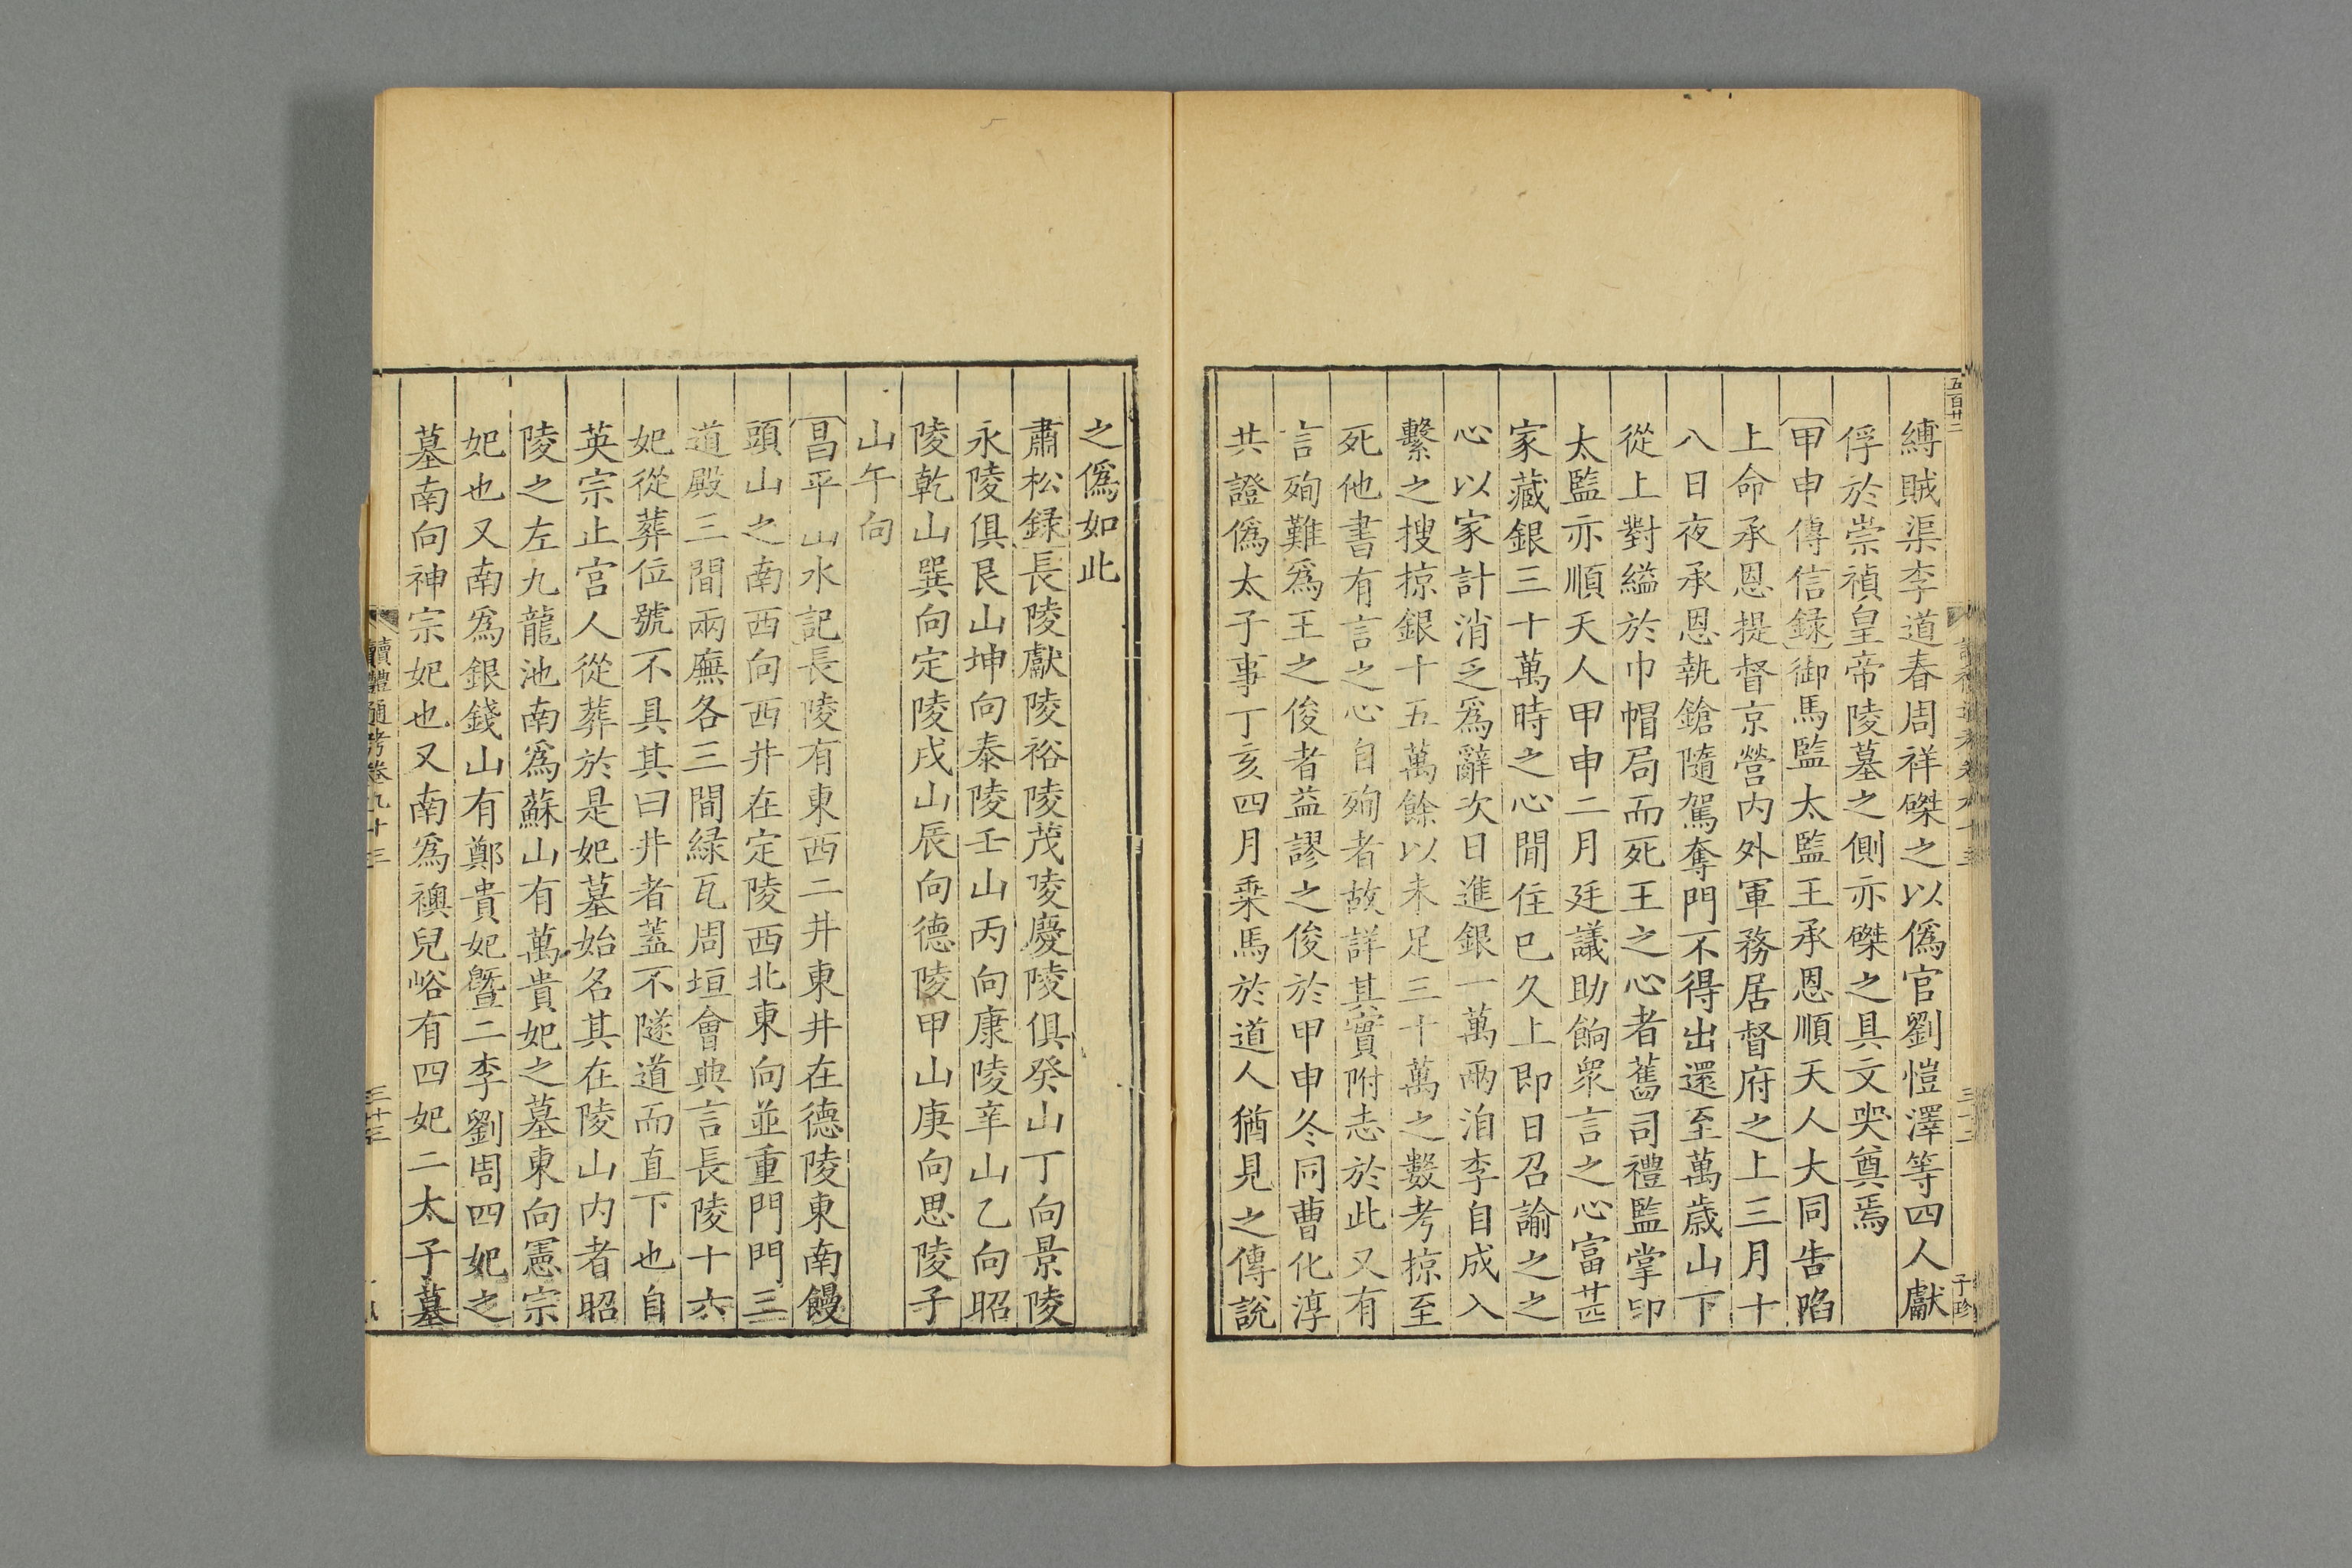 五百廿二
縛賊渠李道春周祥磔之以僞官劉愷澤等四人獻
俘於崇禎皇帝陵墓之側亦磔之具文哭奠焉
甲申傳信録御馬監太監王承恩順天人大同告陷
上命承恩提督京營内外軍務居督府之上三月十
八日夜承恩執鎗隨駕奪門不得出還至萬歲山下
從上對縊於巾帽局而死王之心者舊司禮監掌印
太監亦順天人甲申二月廷議助餉衆言之心富甚
家藏銀三十萬時之心閒住已久上即日召諭之之
心以家計消乏爲辭次日進銀一萬兩洎李自成入
繫之搜掠銀十五萬餘以未足三十萬之數考掠至
死他書有言之心自殉者故詳其實附志於此又有
言殉難爲王之俊者益謬之俊於甲申冬同曹化淳
共證僞太子事丁亥四月乗馬於道人猶見之傳說
子珍
之僞如此
肅松録長陵獻陵裕陵茂陵慶陵俱癸山丁向景陵
永陵俱艮山坤向泰陵壬山丙向康陵辛山乙向昭
陵乾山巽向定陵戌山辰向德陵甲山庚向思陵子
山午向
昌平山水記長陵有東西二井東井在德陵東南饅
頭山之南西向西井在定陵西北東向並重門門三
道殿三間兩廡各三間緑瓦周垣會典言長陵十六
妃從葬位號不具其曰井者蓋不隧道而直下也自
英宗止宫人從葬於是妃墓始名其在陵山内者昭
陵之左九龍池南爲蘇山有萬貴妃之墓東向憲宗
妃也又南爲銀錢山有鄭貴妃暨二李劉周四妃之
墓南向神宗妃也又南爲襖兒峪有四妃二太子墓
讀禮通考卷九十三
三十三